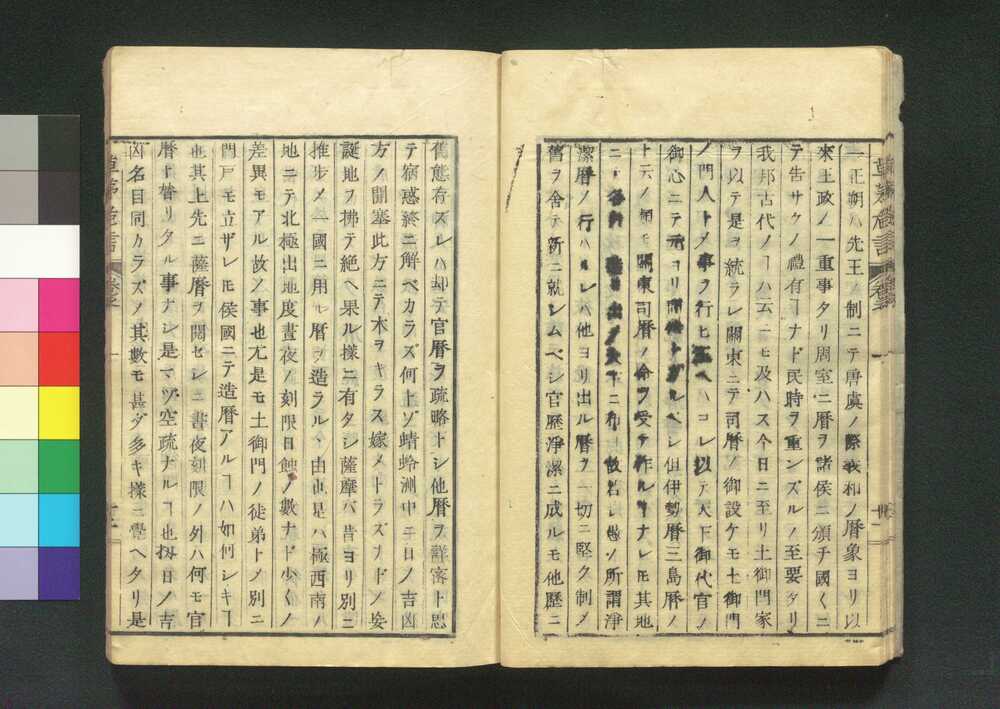 一正朔ハ先王ノ制ニテ唐虞ノ際我和ノ暦象ヨリ以
來王政ノ一重事タリ周室ニ暦ヲ諸侯ニ頒チ國〻ニ
テ告サクノ禮有ヿナド民時ヲ重ンズルノ至要タリ
我邦古代ノヿハ云ニモ及ハス今日ニ至リ土御門家
ヲ以テ是ヲ統ラレ關東ニテ司暦ノ御設ケモ土御門
ノ門人トメ事ヲ行ヒ ハコレ以テ天下御代官ノ
御心ニテ元ヨリ ベシ但伊勢暦三島暦ノ
ト云ノ類モ關東司暦ノ命ヲ受テ作ルヿナレモ其地
ニ 所謂淨
潔暦ノ行ハルレハ他ヨリ出ル暦ヲ一切ニ堅ク制メ
舊ヲ舍テ新ニ就シムベシ官歴淨潔ニ成ルモ他歴ニ
舊態存ズレハ却テ官暦ヲ疏略トシ他暦ヲ詳密ト思
テ宿惑終ニ解ベカラズ何上ゾ蜻蛉洲中ニ日ノ吉凶
方ノ開塞此方ニテ木ヲキラス嫁メトラズナドノ妄
誕地ヲ拂テ絶ヘ果ル樣ニ有タシ薩摩バ昔ヨリ別ニ
推歩メ一國ニ用ル暦ヲ造ラル丶由也是ハ極西南ノ
地ニテ北極出地度晝夜ノ刻限日蝕ノ數ナド少〱ノ
差異モアル故ノ事也尤是モ土御門ノ徒弟トメ別ニ
門戸モ立ザレモ侯國ニテ造暦アルヿハ如何シキヿ
也其上先ニ薩暦ヲ閲セシニ晝夜刻限ノ外ハ何モ官
暦ト替リタル事ナシ是マヅ空疏ナルヿ也扨日ノ吉
凶名目同カラズメ其數モ甚ダ多キ樣ニ覺ヘタリ是